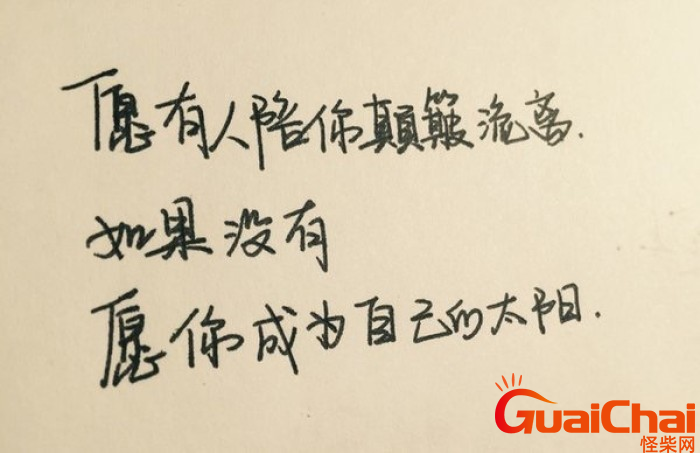 愿有人陪你颠簸流离.
如果没有
愿你成为自己的太阳.
GuaiChai
怪柴网